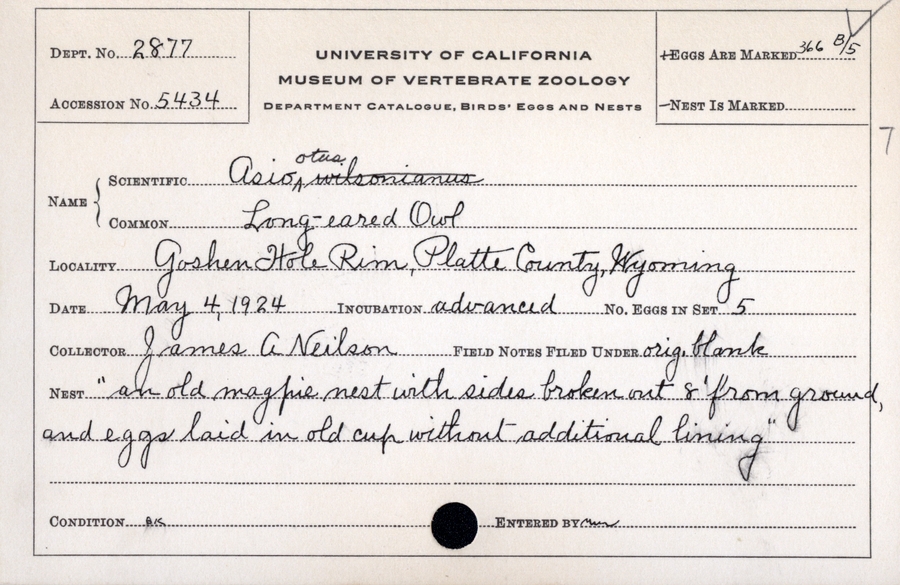 DEPT. NO. 2877
ACCESSION NO. 5434
UNIVERSITY OF CALIFORNIA
MUSEUM OF VERTEBRATE ZOOLOGY
DEPARTMENT CATALOGUE, BIRDS' EGGS AND NESTS
+EGGS ARE MARKED 366 B/5
—NEST IS MARKED
7
NAME
SCIENTIFIC Asio otus wilsonianus
COMMON Long-eared Owl
LOCALITY Goshen Hole Rim, Platte County, Wyoming
DATE May 4, 1924 INCUBATION advanced NO. EGGS IN SET 5
COLLECTOR James A Neilson FIELD NOTES FILED UNDER orig. blank
NEST "an old magpie nest with sides broken out 8' from ground,
and eggs laid in old cup without additional lining"
CONDITION BK ENTERED BY